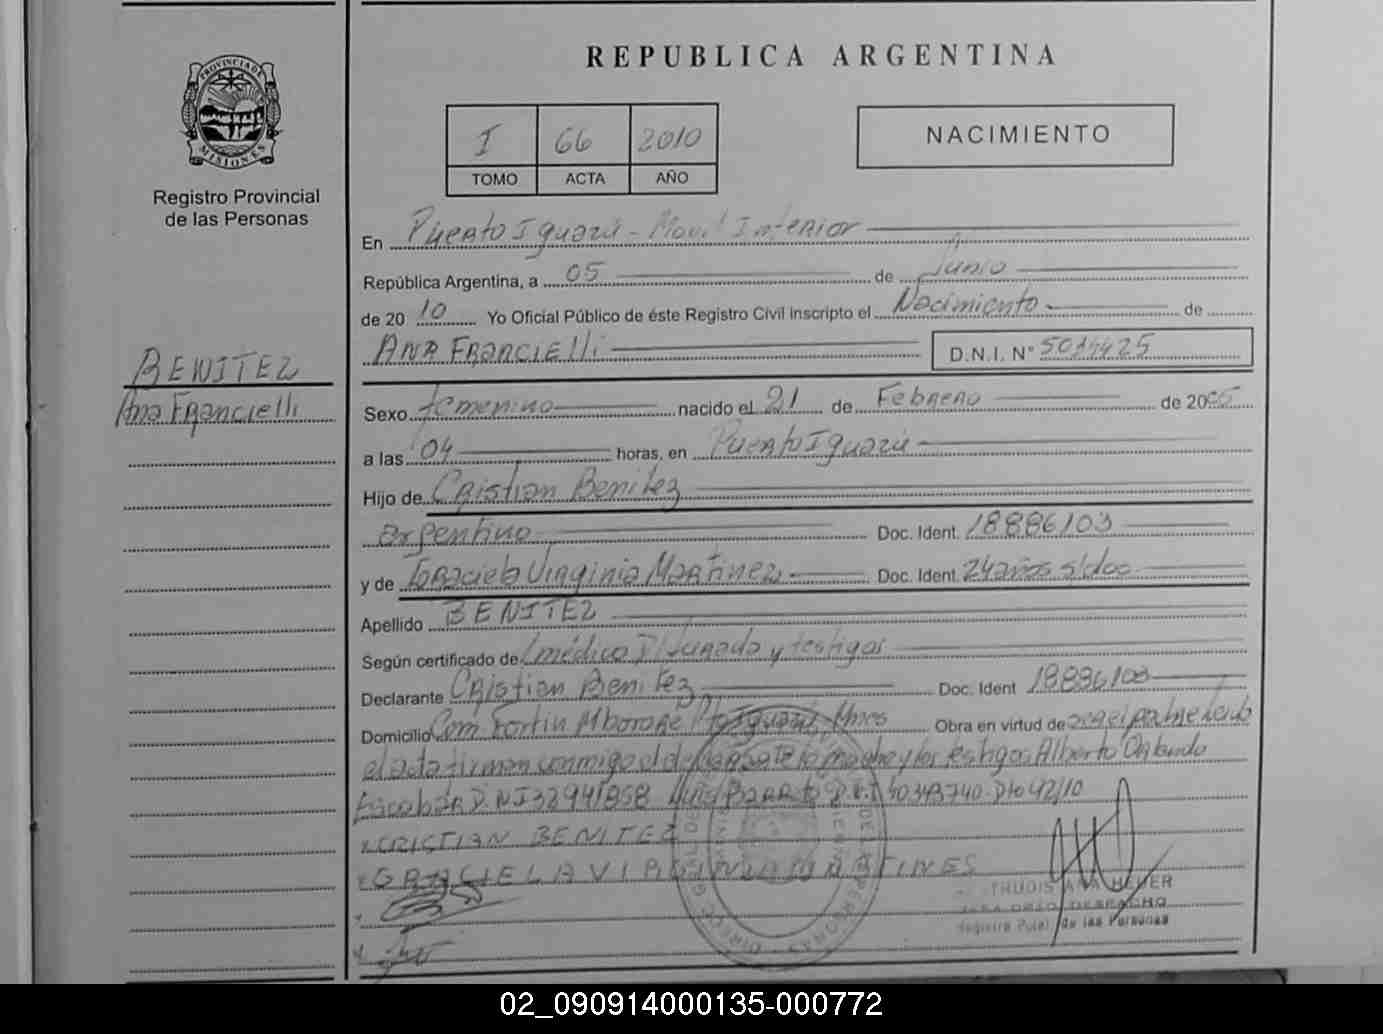 REPUBLICA ARGENTINA
PROVINCIA DE
MISIONES
Registro Provincial
de las Personas
I 66 2010
TOMO ACTA AÑO
NACIMIENTO
En Puerto Iguazú - Movil Interior
República Argentina, a 05 de Junio
de 20 10 Yo Oficial Público de éste Registro Civil inscripto el Nacimiento de
ANA FRANCIELLI D.N.I. Nº
BENITEZ
Ana Francielli
Sexo femenino nacido el 21 de Febrero de 2005
a las 04 horas, en Puerto Iguazú
Hijo de Cristian Benitez
argentino Doc. Ident. 18886103
y de Graciela Virginia Martinez Doc. Ident. 24 años s/doc
Apellido BENITEZ
Según certificado de médico D/Jurada y testigos
Declarante Cristian Benitez Doc. Ident 18886103
Domicilio Com Fortin Mborore Pto Iguazú, Mnes Obra en virtud de
el acta firman conmigo el declarante la madre y los testigos Alberto Orlando
Escobar D.N.I 32941858 Luis D.N.I 40343740 - Dto 42/10
CRISTIAN BENITEZ
GRACIELA VIRGINIA MARTINES
Registro Pcial. de las Personas
02_090914000135-000772